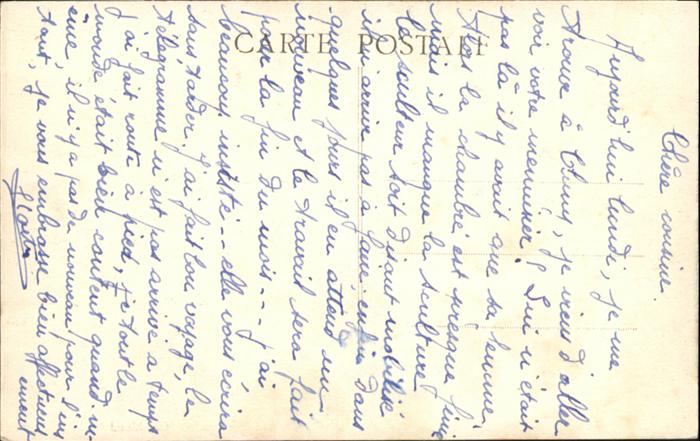 CARTE POSTALE
Chère cousine
Aujourd'hui lundi, je me
trouve à Cluny, je viens d'aller
voir votre menuisier. Lui n'était
pas là il y avait que sa femme,
Alors la chambre est presque finie
mais il manque la sculture
le sculteur soit disant mobilisé
n'arrive pas à faire enfin dans
quelques jours il en attend un
nouveau et le travail sera fait
pour la fin du mois... j'ai
beaucoup insisté... elle vous écrira
sans tarder. J'ai fait bon voyage, le
télégramme n'est pas arrivé à temps
J'ai fait route à pied, et tout le
monde était bien content quand m-
ême, il n'y a pas de nouveau pour l'ins
tant, je vous embrasse bien affectueus
ement